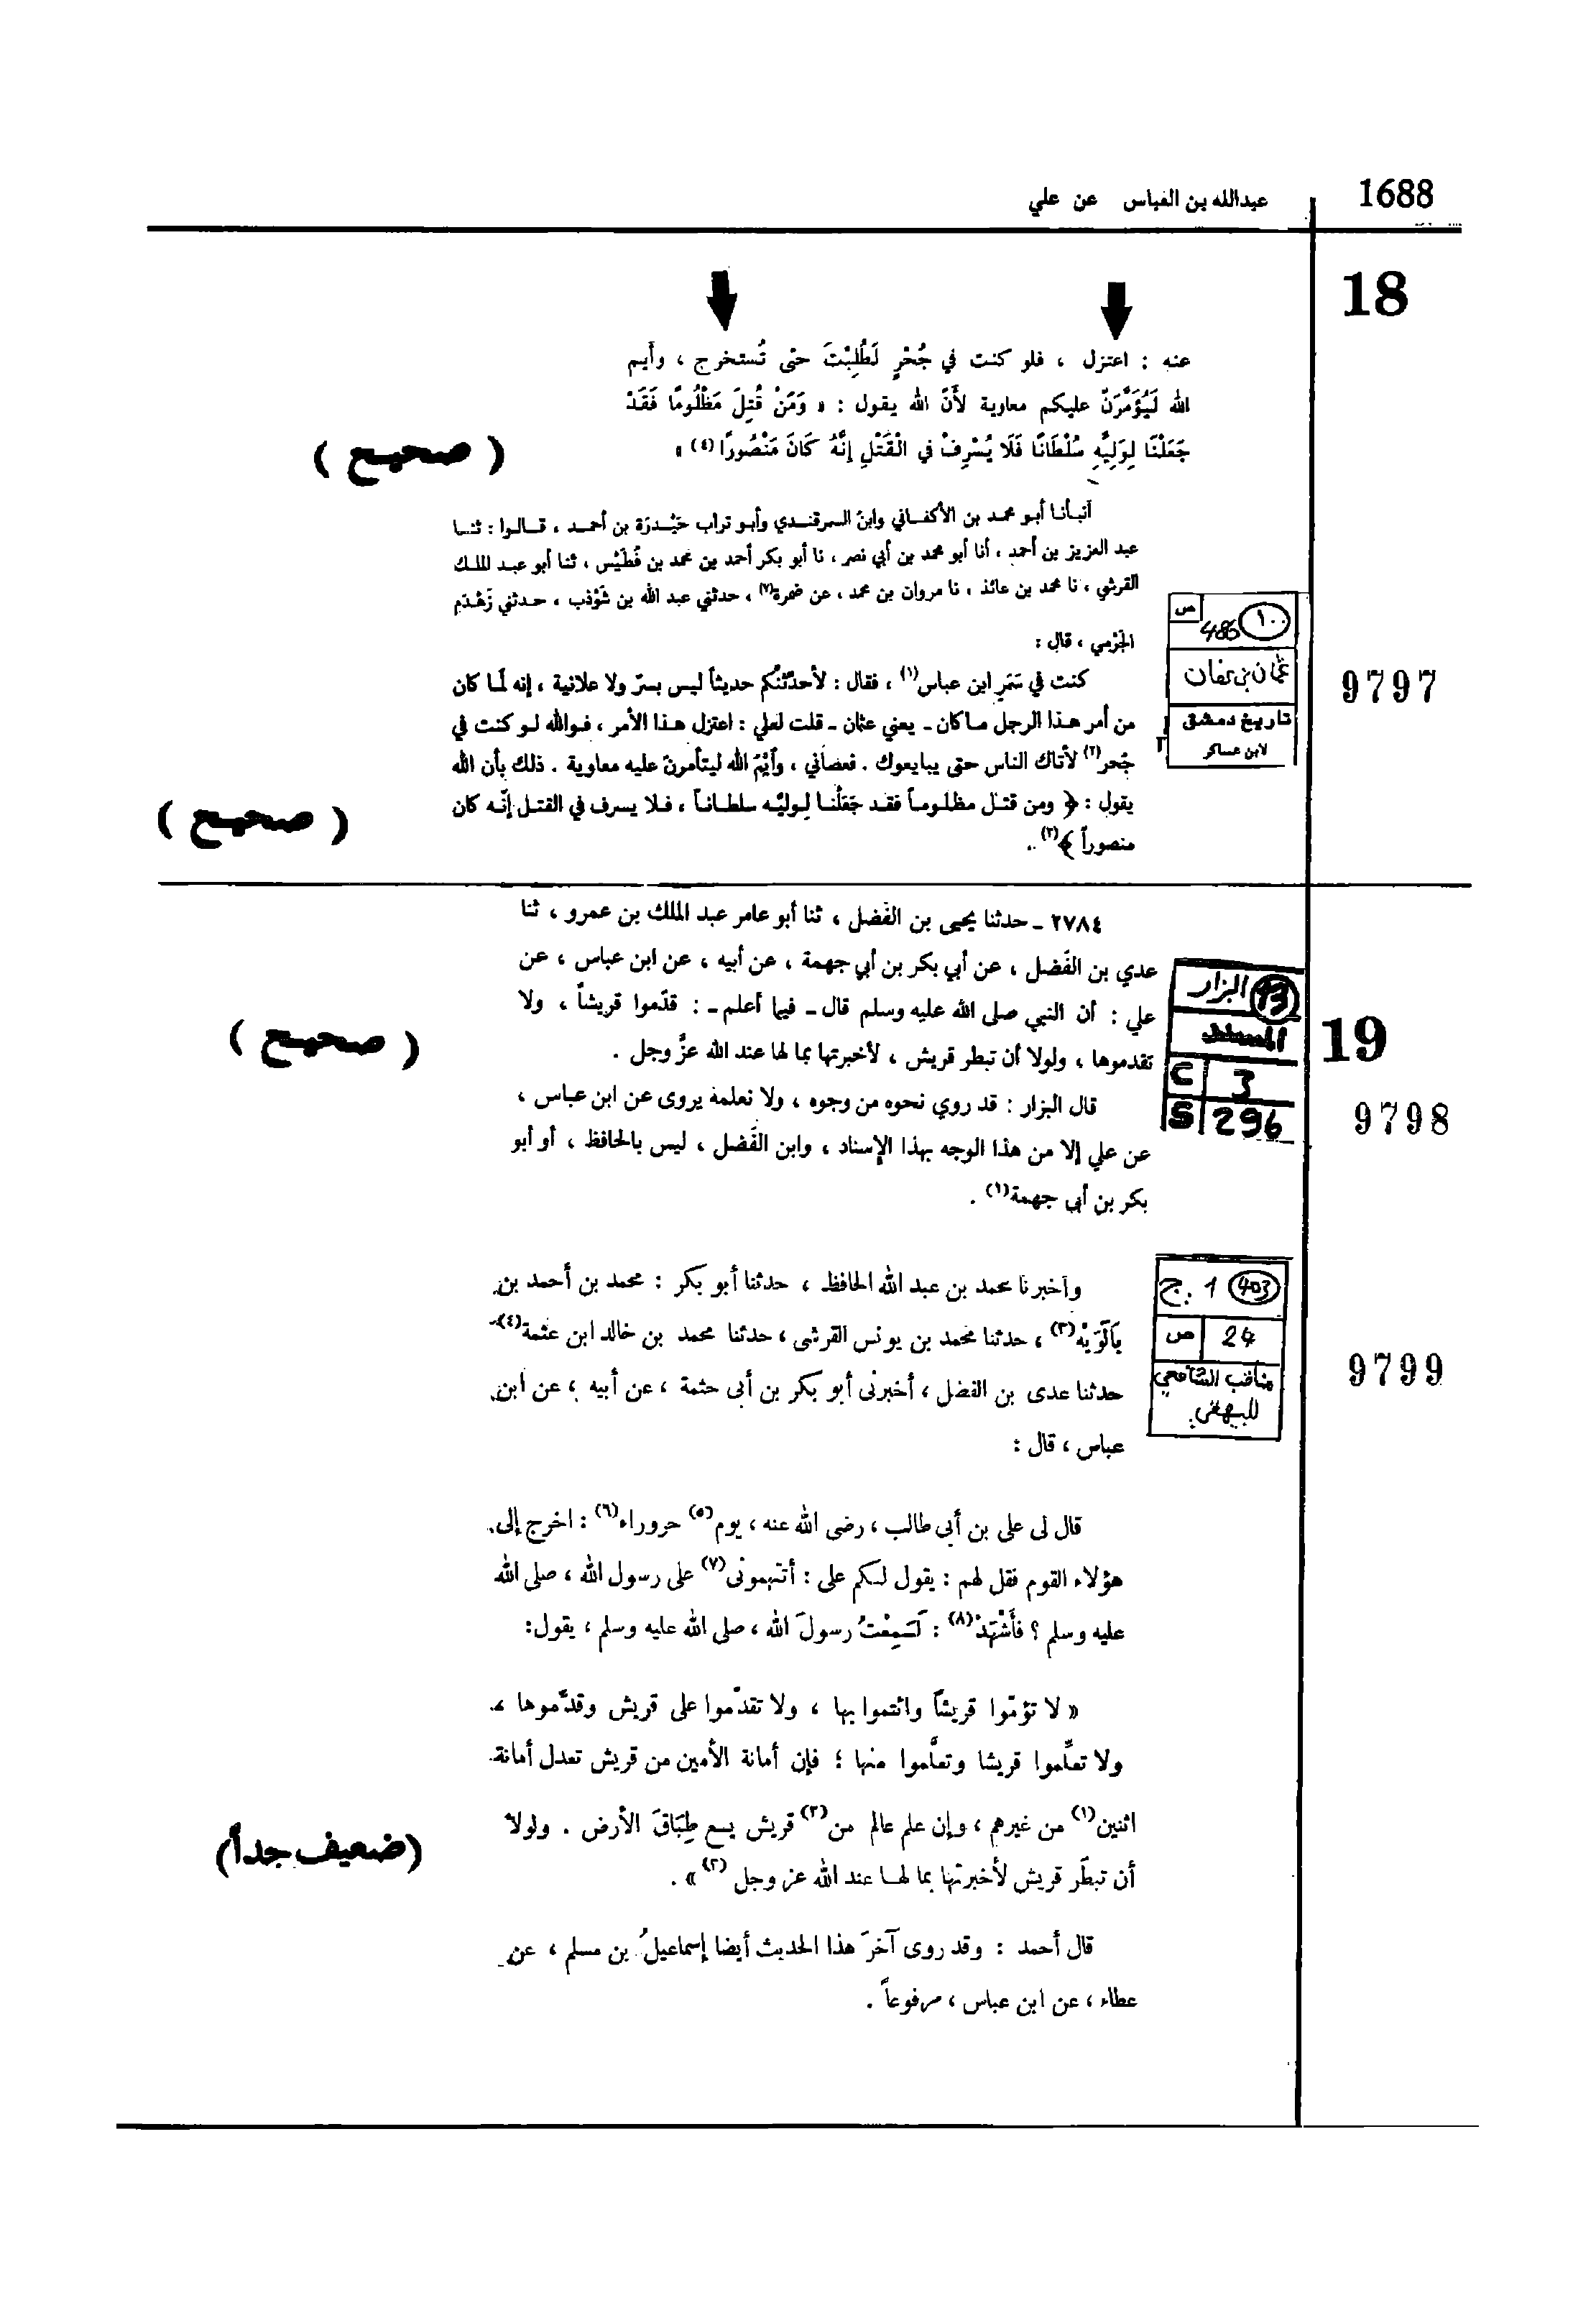 1688
عبدالله بن العباس عن علي
18
عنه : اعتزل ، فلو كنت في جُحْرٍ لَطُلِبْتَ حتى تُستخرج ، وأيم
الله لَيُؤَمَّرَنّ عليكم معاوية لأنّ الله يقول : « وَمَنْ قُتِلَ مَظْلُومًا فَقَدْ
جَعَلْنَا لِوَلِيِّهِ سُلْطَانًا فَلَا يُسْرِفْ في الْقَتْلِ إنَّهُ كَانَ مَنْصُورًا (٤) »
( صحيح )
أنبأنا أبو محمد بن الأكفاني وابن السمرقندي وأبو تراب حَيْدرَة بن أحمد ، قالوا : ثنا
عبد العزيز بن أحمد ، أنا أبو محمد بن أبي نصر ، نا أبو بكر أحمد بن محمد بن فُطَيْس ، ثنا أبو عبد الملك
القرشي ، نا محمد بن عائذ ، نا مروان بن محمد ، عن ضمرة(٧) ، حدثني عبد الله بن شَوْذب ، حدثني زَهْدَم
الجَرْمي ، قال :
ص
486
١٠٠
عثمان بن عفان
تاريخ دمشق
لابن عساكر
9797
كنت في سَمَرِ ابن عباس(١) ، فقال : لأحدّثنّكم حديثاً ليس بسرّ ولا علانية ، إنه لَما كان
من أمر هذا الرجل ما كان - يعني عثمان - قلت لعلي : اعتزل هذا الأمر ، فوالله لو كنت في
جُحر(٢) لأتاك الناس حتى يبايعوك . فعصاني ، وأيْمُ الله ليتأمرنّ عليه معاوية . ذلك بأن الله
يقول : ﴿ ومن قتل مظلوماً فقد جَعَلْنا لوليّه سلطاناً ، فلا يسرف في القتل إنّه كان
منصوراً ﴾(٣) .
( صحيح )
٢٧٨٤ - حدثنا يحيى بن الفَضل ، ثنا أبو عامر عبد الملك بن عمرو ، ثنا
عدي بن الفَضل ، عن أبي بكر بن أبي جهمة ، عن أبيه ، عن ابن عباس ، عن
علي : أن النبي صلى الله عليه وسلم قال - فيما أعلم - : قدّموا قريشاً ، ولا
تقدموها ، ولولا أن تبطر قريش ، لأخبرتها بما لها عند الله عزّ وجل .
( صحيح )
البزار
C 3
S 296
19
9798
قال البزار : قد روي نحوه من وجوه ، ولا نعلمة يروى عن ابن عباس ،
عن علي إلا من هذا الوجه بهذا الإسناد ، وابن الفَضل ، ليس بالحافظ ، أو أبو
بكر بن أبي جهمة(١) .
403 1 ج
ص 24
مناقب الشافعي
للبيهقي
9799
وأخبرنا محمد بن عبد الله الحافظ ، حدثنا أبو بكر : محمد بن أحمد بن
بَالَوَيْه(٣) ، حدثنا محمد بن يونس القرشى ، حدثنا محمد بن خالد ابن عثمة(٤)
حدثنا عدى بن الفضل ، أخبرنى أبو بكر بن أبى حثمة ، عن أبيه ، عن ابن
عباس ، قال :
قال لى على بن أبى طالب ، رضى الله عنه ، يوم(٥) حروراء(٦) : اخرج إلى
هؤلاء القوم فقل لهم : يقول لكم على : أتتهمونى(٧) على رسول الله ، صلى الله
عليه وسلم ؟ فأَشْهَدُ(٨) : لَسَمِعْتُ رسولَ الله ، صلى الله عليه وسلم ، يقول:
« لا تؤمّوا قريشاً وائتموا بها ، ولا تقدّموا على قريش وقدِّموها ،
ولا تعلِّموا قريشا وتعلَّموا منها ؛ فإن أمانة الأمين من قريش تعدل أمانة
اثنين(١) من غيرهم ، وإن علم عالم من(٢) قريش يسع طِبَاقَ الأرض . ولولا
أن تبطَر قريش لأخبرتها بما لها عند الله عز وجل (٣) » .
(ضعيف جداً)
قال أحمد : وقد روى آخرَ هذا الحديث أيضا إسماعيلُ بن مسلم ، عن
عطاء ، عن ابن عباس ، مرفوعاً .